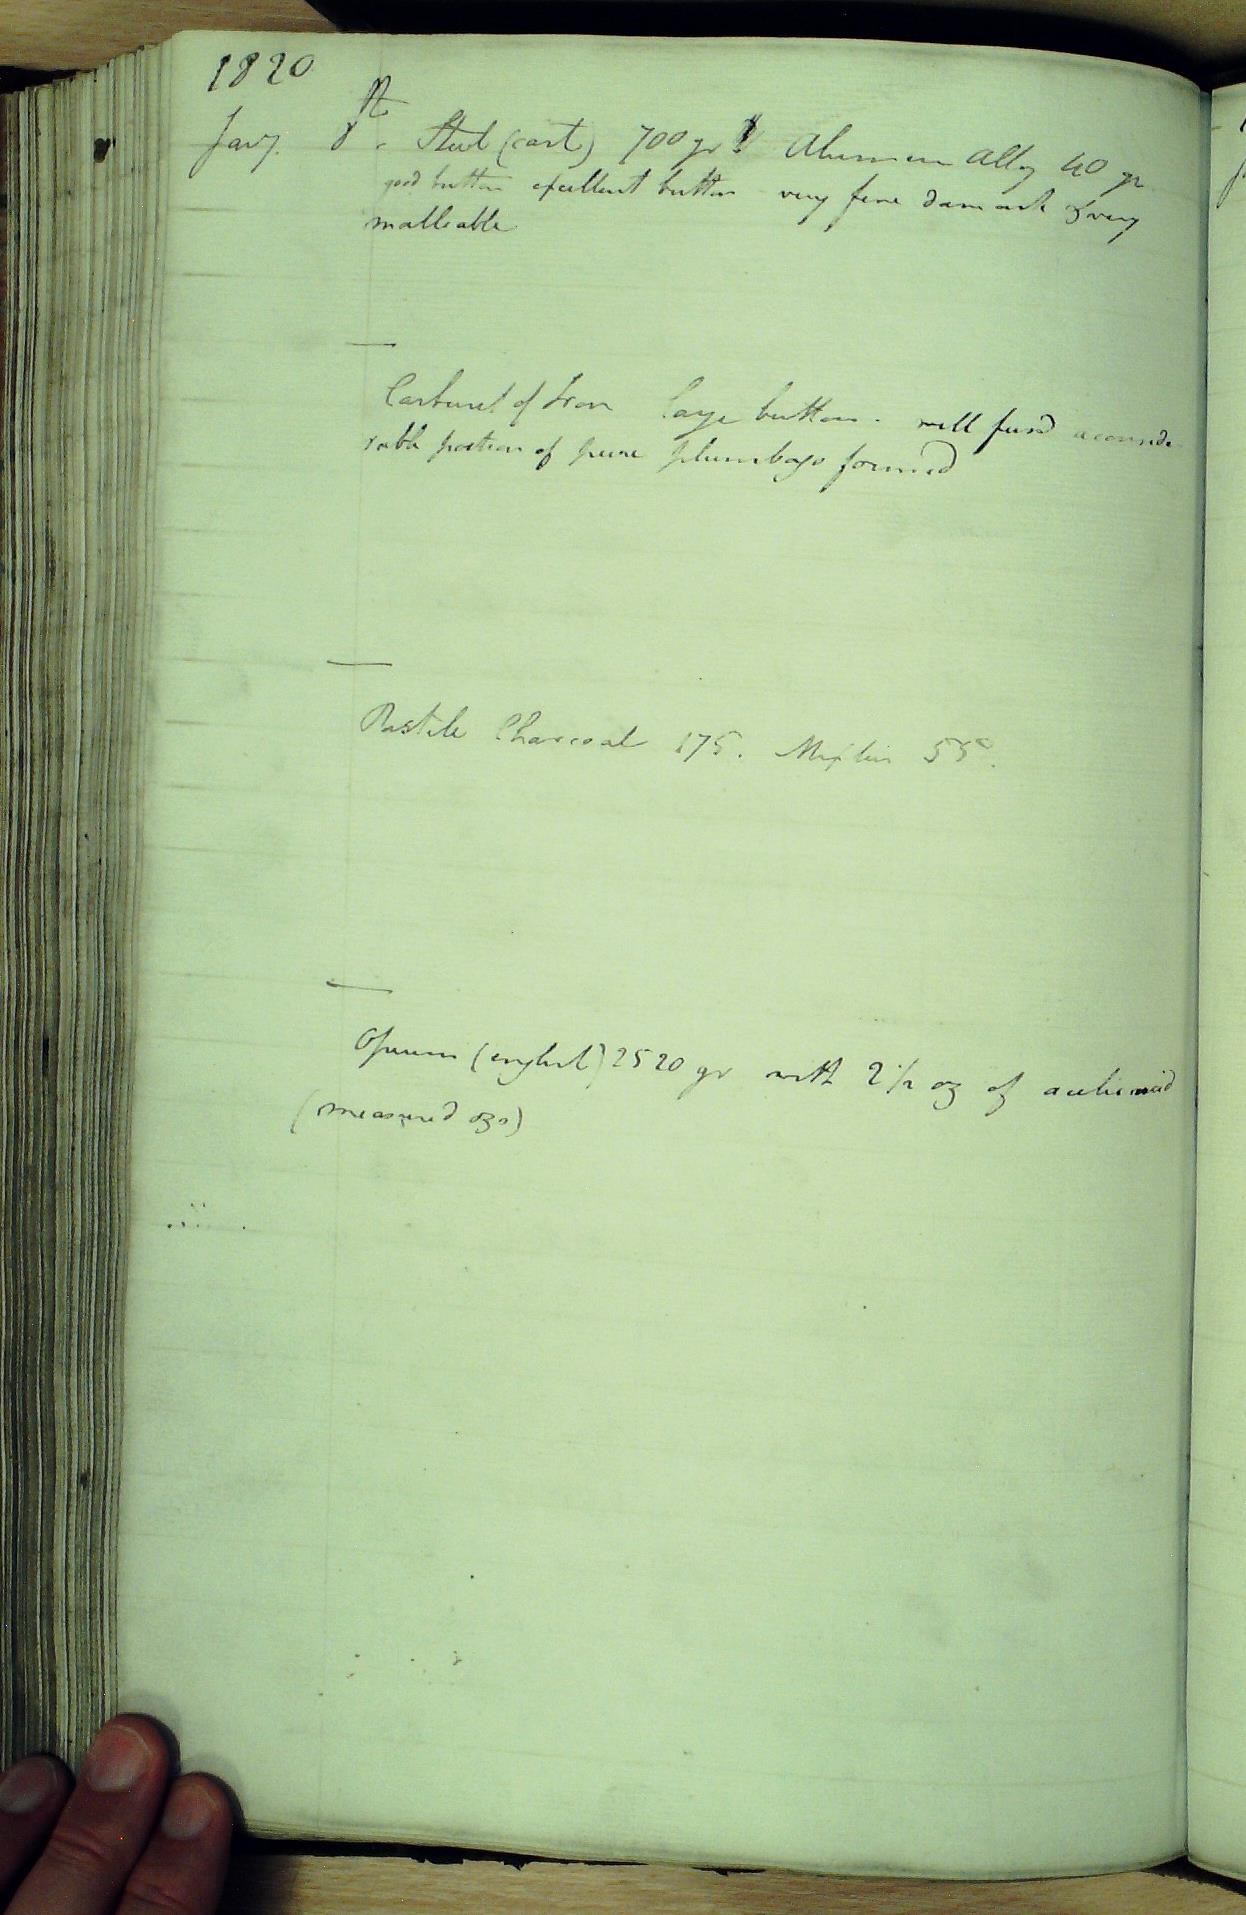 1820
Jany. 8th. Steel (cast) 700 grs Alumine Alloy 40 gr
good button excellent button very fine damask & very
malleable
Carburet of Iron large button. well fused a conside
rable portion of pure plumbago formed
Pastile Charcoal 175. 55°.
Opium (english) 2520 gr with 2 1/2 oz of acetic acid
(measured ozs)